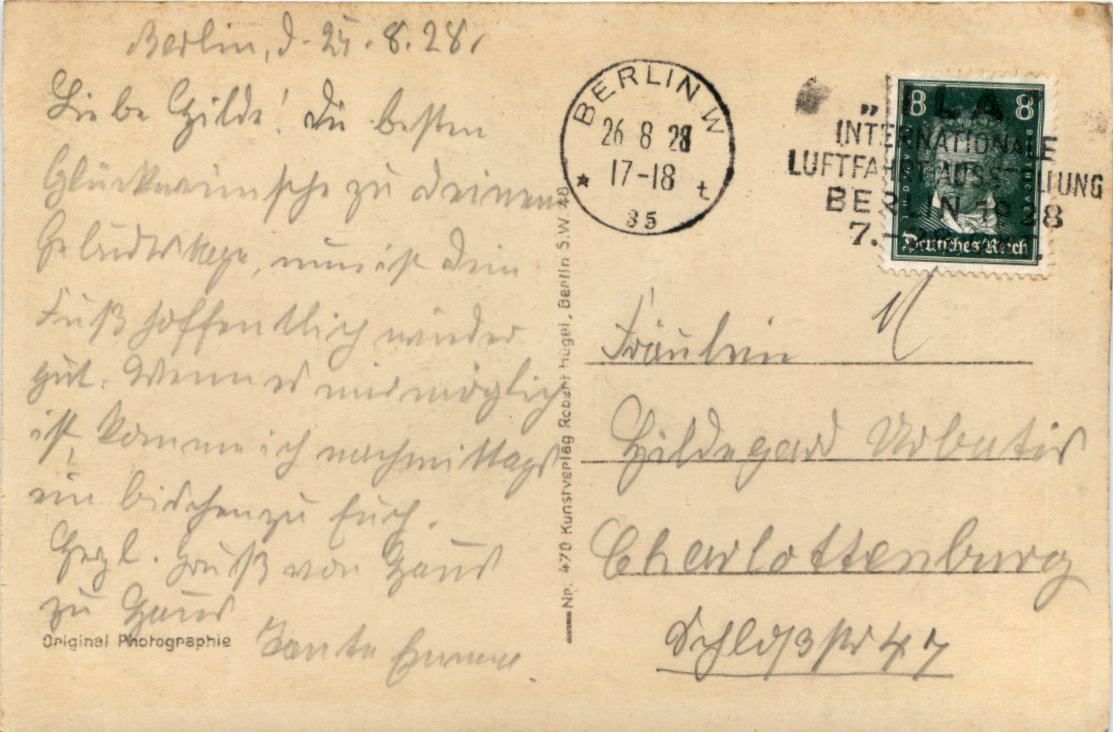 Berlin, d. 25.8.28.
Liebe Hilde! Die besten
Glückwünsche zu Deinem
Geburtstage, nun ist Dein
Fuß hoffentlich wieder
gut. Wenn es mir möglich
ist, komme ich nachmittags
ein bischen zu Euch.
Herzl. Gruß von Haus
zu Haus
Tante Emma.
Original Photographie
Nr. 470 Kunstverlag Robert Hügel, Berlin S.W. 48
BERLIN W
26 8 28
17-18
t
35
„ILA"
INTERNATIONALE
LUFTFAHRT-AUSSTELLUNG
BERLIN 1928
7.
8 8
Deutsches Reich
Fräulein
Hildegard Urbatis
Charlottenburg
Schloßstr 47